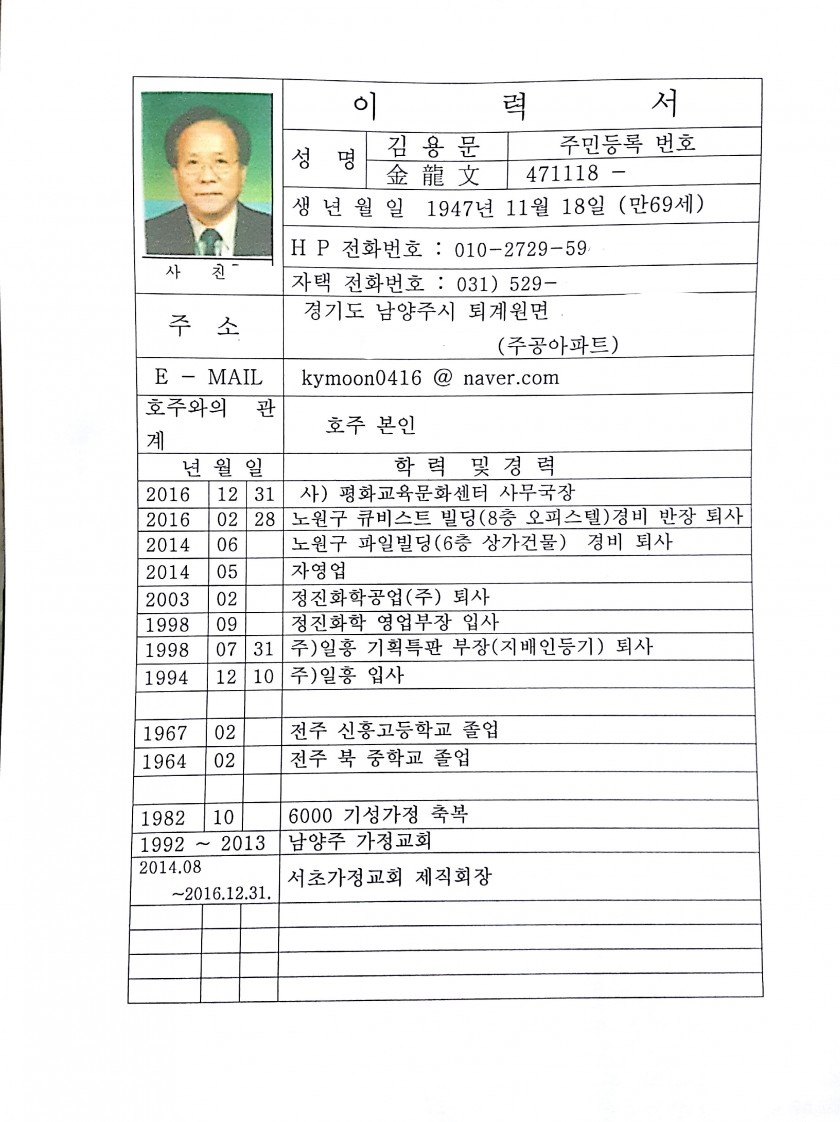 이 력 서
성 명 김 용 문 주민등록 번호
金 龍 文 471118 -
생 년 월 일 1947년 11월 18일 (만69세)
H P 전화번호 : 010-2729-59
사 진
자택 전화번호 : 031) 529-
주 소 경기도 남양주시 퇴계원면
(주공아파트)
E - MAIL kymoon0416 @ naver.com
호주와의 관
계
호주 본인
년 월 일 학 력 및 경 력
2016 12 31 사) 평화교육문화센터 사무국장
2016 02 28 노원구 큐비스트 빌딩(8층 오피스텔)경비 반장 퇴사
2014 06 노원구 파일빌딩(6층 상가건물) 경비 퇴사
2014 05 자영업
2003 02 정진화학공업(주) 퇴사
1998 09 정진화학 영업부장 입사
1998 07 31 주)일흥 기획특판 부장(지배인등기) 퇴사
1994 12 10 주)일흥 입사
1967 02 전주 신흥고등학교 졸업
1964 02 전주 북 중학교 졸업
1982 10 6000 기성가정 축복
1992 ~ 2013 남양주 가정교회
2014.08
~2016.12.31.
서초가정교회 제직회장